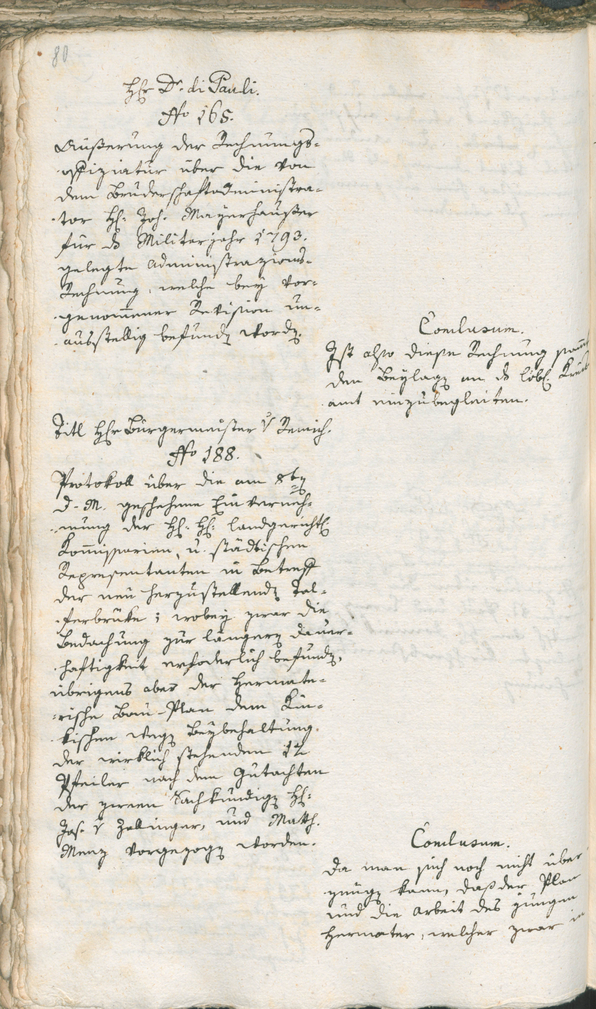 80
Hr. Dr. di Pauli.
No 165.
Äußerung der Rechnungs-
offiziatur über die von
dem Bruderschaftadministra-
tor Hh: Joh. Mayrhauser
für ds Militarjahr 1793.
gelegte Administrazions-
Rechnung, welche bey vor-
genommener Revision un-
ausstellig befundn wordn.
Conclusum.
Ist also diese Rechnung samt
den Beylagn an ds löbl. Kreis
amt einzubegleiten.
Titl Hr Bürgermeister v Remich.
No 188.
Protokoll über die am 8tn
d. M. geschehene Einverneh-
mung der Hh: Hh: landgerichtl
Kommissarien, u. städtischen
Representanten in Betreff
der neu herzustellendn Tal-
ferbrüke; wobey zwar die
Bedachung zur längern Dauer-
haftigkeit erforderlich befundn,
übrigens aber der Hermate-
rische Bau-Plan dem Kün-
kischen wegn Beybehaltung
der wirklich stehenden 12
Pfeiler nach dem Gutachten
der zween Sachkundign Hh:
Jos. v Zallinger, und Math.
Menz vorgezogn worden.
Conclusum.
Da man sich noch nicht über
zeugn kann, daß der Plan
und die Arbeit des jungen
Hermater, welcher zwar in